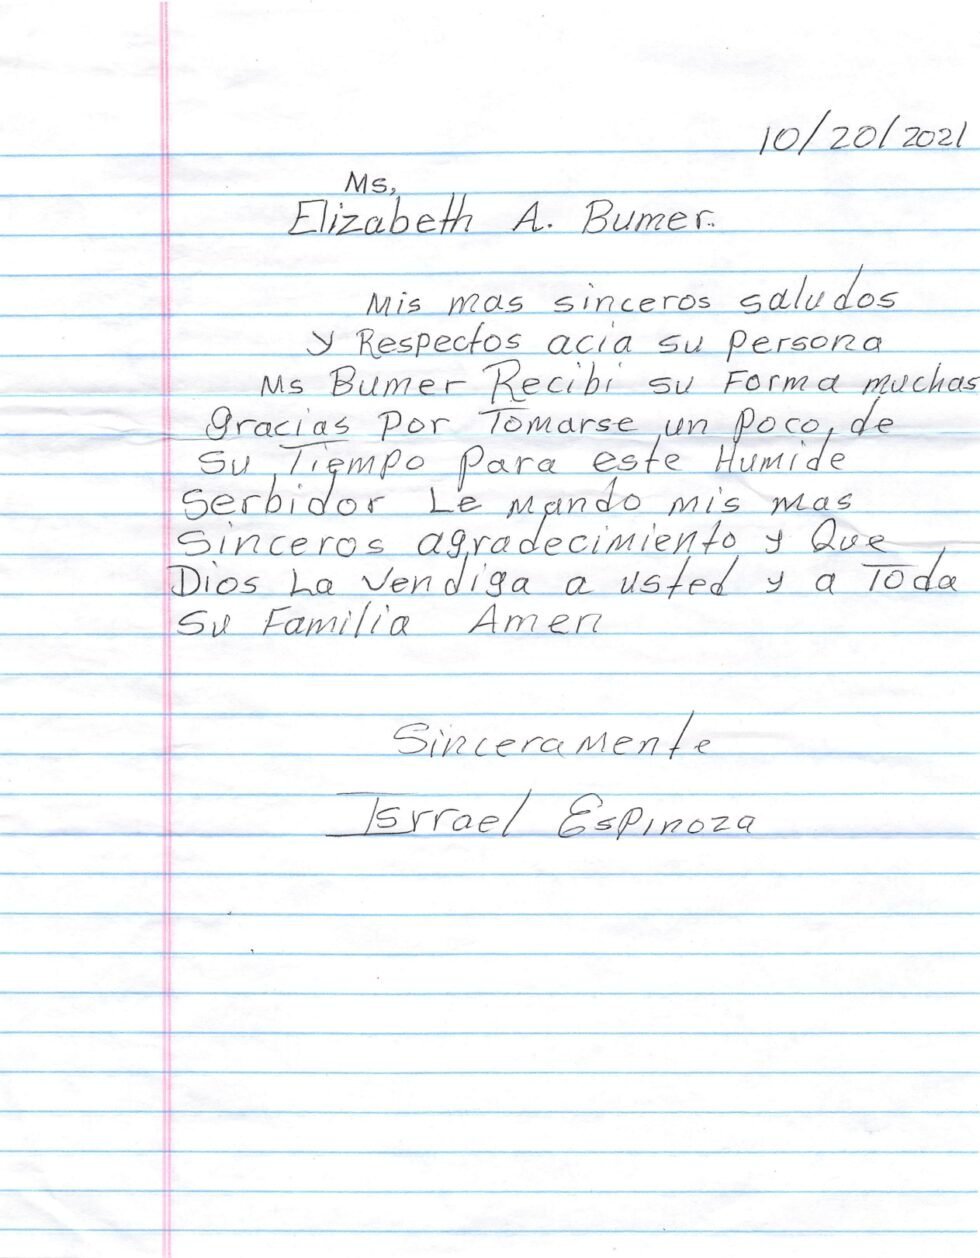 10/20/2021
Ms,
Elizabeth A. Bumer.
Mis mas sinceros saludos
y Respectos acia su persona
Ms Bumer Recibi su Forma muchas
gracias Por Tomarse un Poco de
Su Tiempo Para este Humide
Serbidor Le mando mis mas
Sinceros agradecimiento y Que
Dios La Vendiga a usted y a Toda
Su Familia Amen
Sinceramente
Isrrael Espinoza